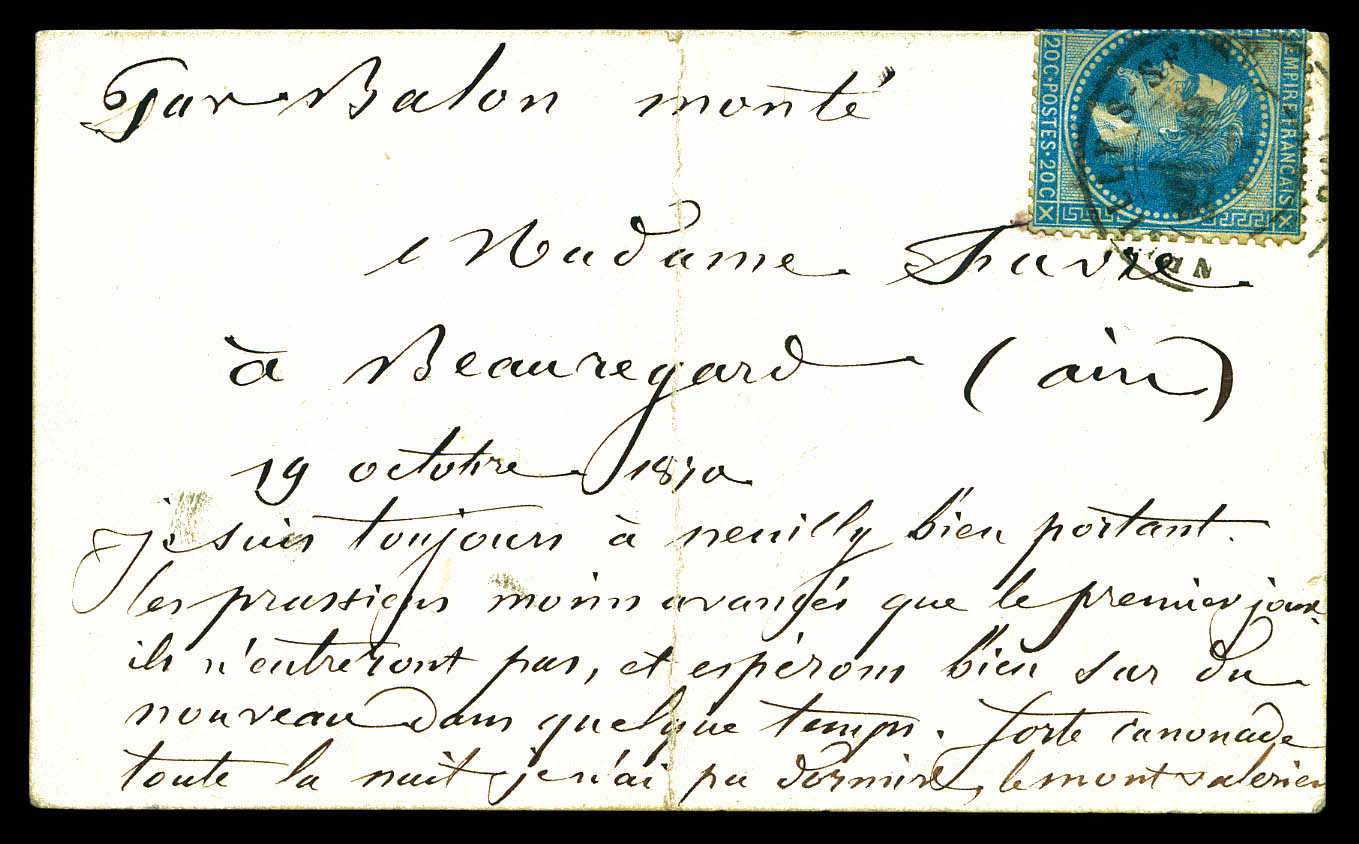 Par Balon monté
Madame Favre
à Beauregard (ain)
19 octobre 1870
je suis toujours à neuilly bien portant.
les prussiens moins avancés que le premier jour,
ils n'entreront pas, et espérons bien sur du
nouveau dans quelque temps. forte canonade
toute la nuit je n'ai pu dormire, le mont valerien
EMPIRE FRANCAIS
20C·POSTES·20C
NEUILLY-S-SEINE